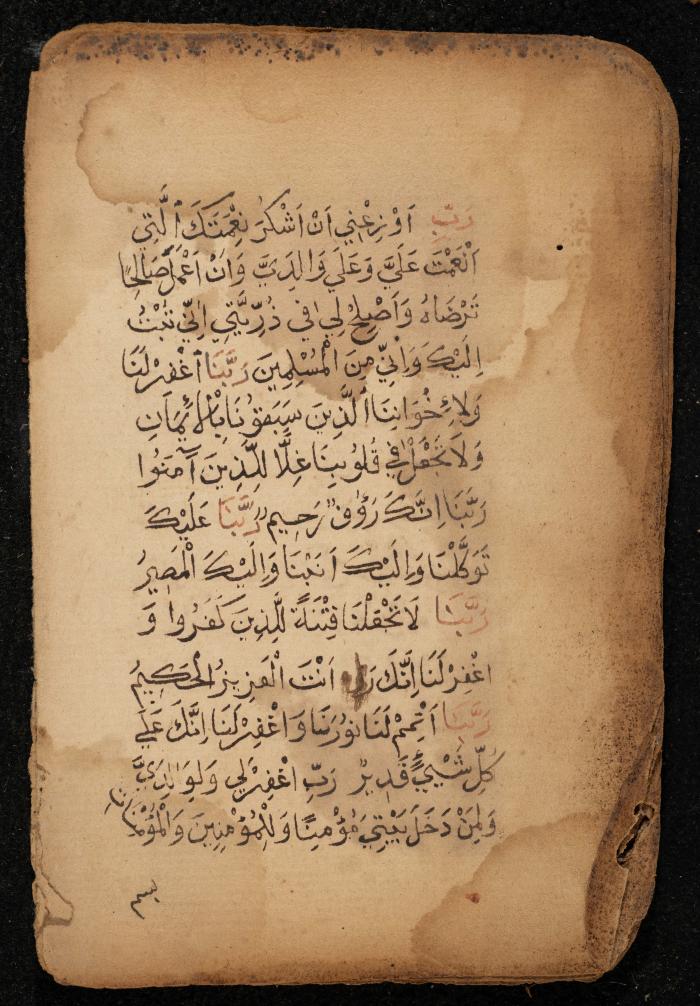 رَبِّ اَوْزِعْنِي اَنْ اَشْكُرَ نِعْمَتَكَ ٱلَّتِي
اَنْعَمْتَ عَلَيَّ وَعَلَي وَالِدَيَّ وَاَنْ اَعْمَلَ صَالِحًا
تَرْضَاهُ وَاَصْلِحْ لِي فِي ذُرِّيَّتِي اِنِّي تُبْتُ
اِلَيْكَ وَاِنِّي مِنَ الْمُسْلِمِينَ رَبَّنَا ٱغْفِرْ لَنَا
وَلِاِخْوَانِنَا ٱلَّذِينَ سَبَقُونَا بِالْاِيمَانِ
وَلَا تَجْعَلْ فِي قُلُوبِنَا غِلًّا لِلَّذِينَ آمَنُوا
رَبَّنَا اِنَّكَ رَؤُفٌ رَحِيمٌ رَبَّنَا عَلَيْكَ
تَوَكَّلْنَا وَاِلَيْكَ اَنَبْنَا وَاِلَيْكَ الْمَصِيرُ
رَبَّنَا لَا تَجْعَلْنَا فِتْنَةً لِلَّذِينَ كَفَرُوا وَ
اغْفِرْ لَنَا اِنَّكَ اَنْتَ الْعَزِيزُ الْحَكِيمُ
رَبَّنَا اَتْمِمْ لَنَا نُورَنَا وَاغْفِرْ لَنَا اِنَّكَ عَلَي
كُلِّ شَيْيءٍ قَدِيرٌ رَبِّ اغْفِرْ لِي وَلِوَالِدَيَّ
وَلِمَنْ دَخَلَ بَيْتِيَ مُؤْمِنًا وَلِلْمُؤْمِنِينَ وَالْمُؤْمِنَاتِ